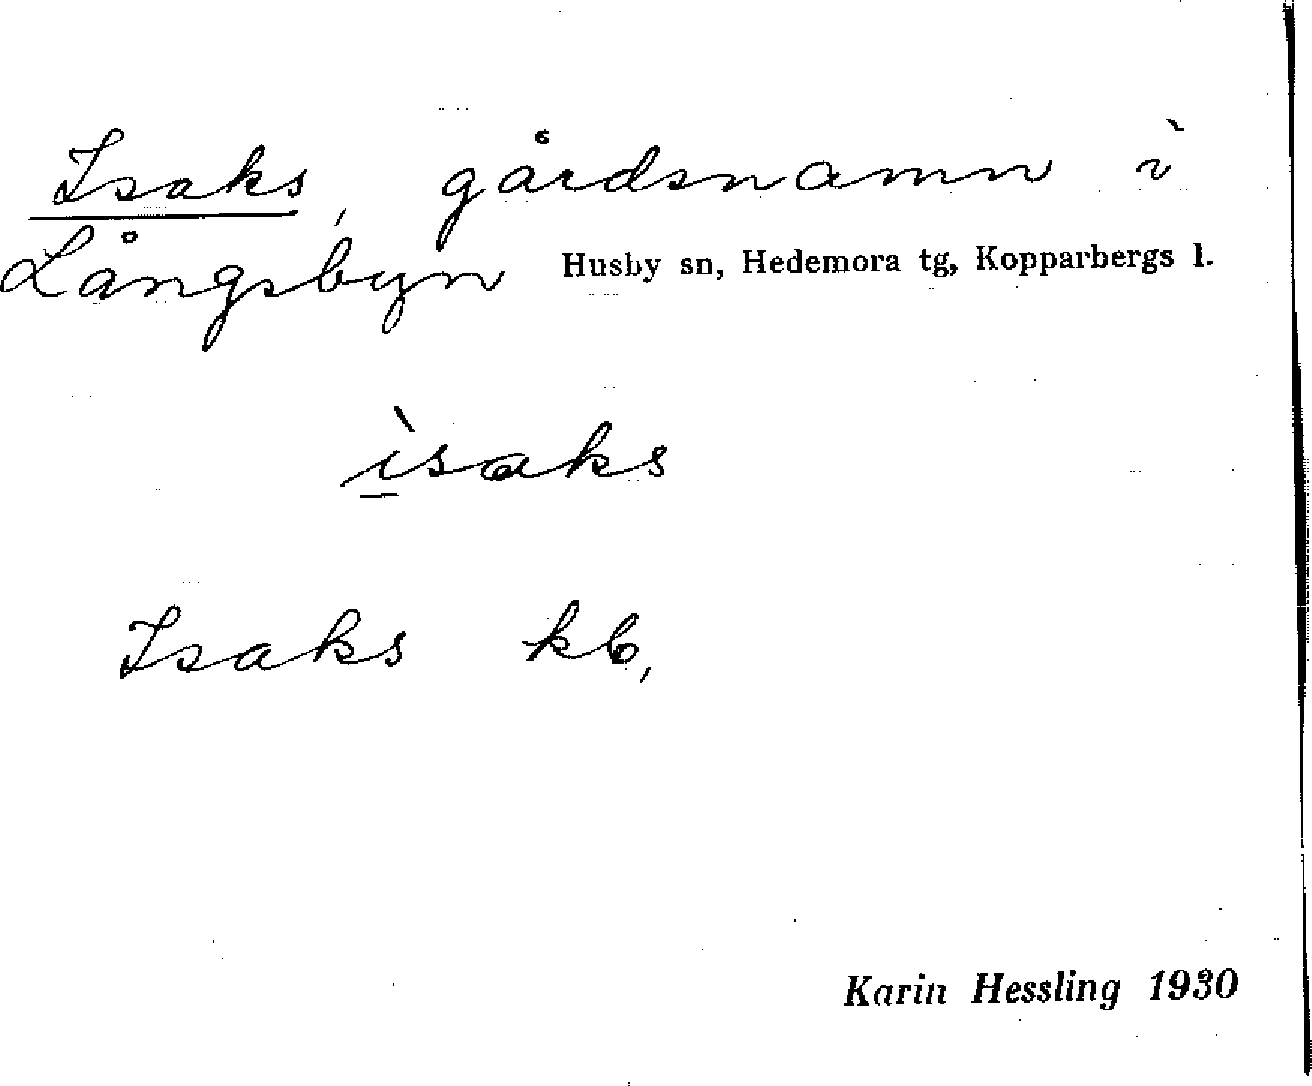 Isaks, gårdsnamn i
Långsbyn Husby sn, Hedemora tg, Kopparbergs l.
ìsaks
Isaks kb,
Karin Hessling 1930